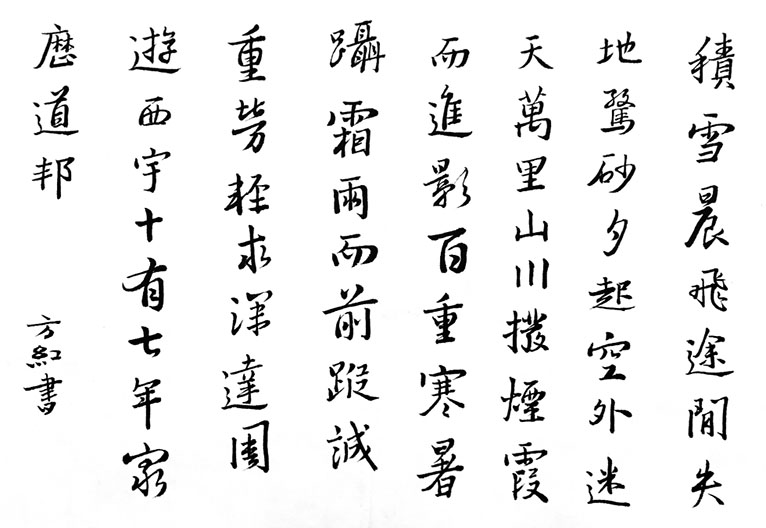 積雪晨飛途間失
地驚砂夕起空外迷
天萬里山川撥煙霞
而進影百重寒暑
躡霜雨而前蹤誠
重勞輕求深達周
遊西宇十有七年窮
歷道邦
方紅書